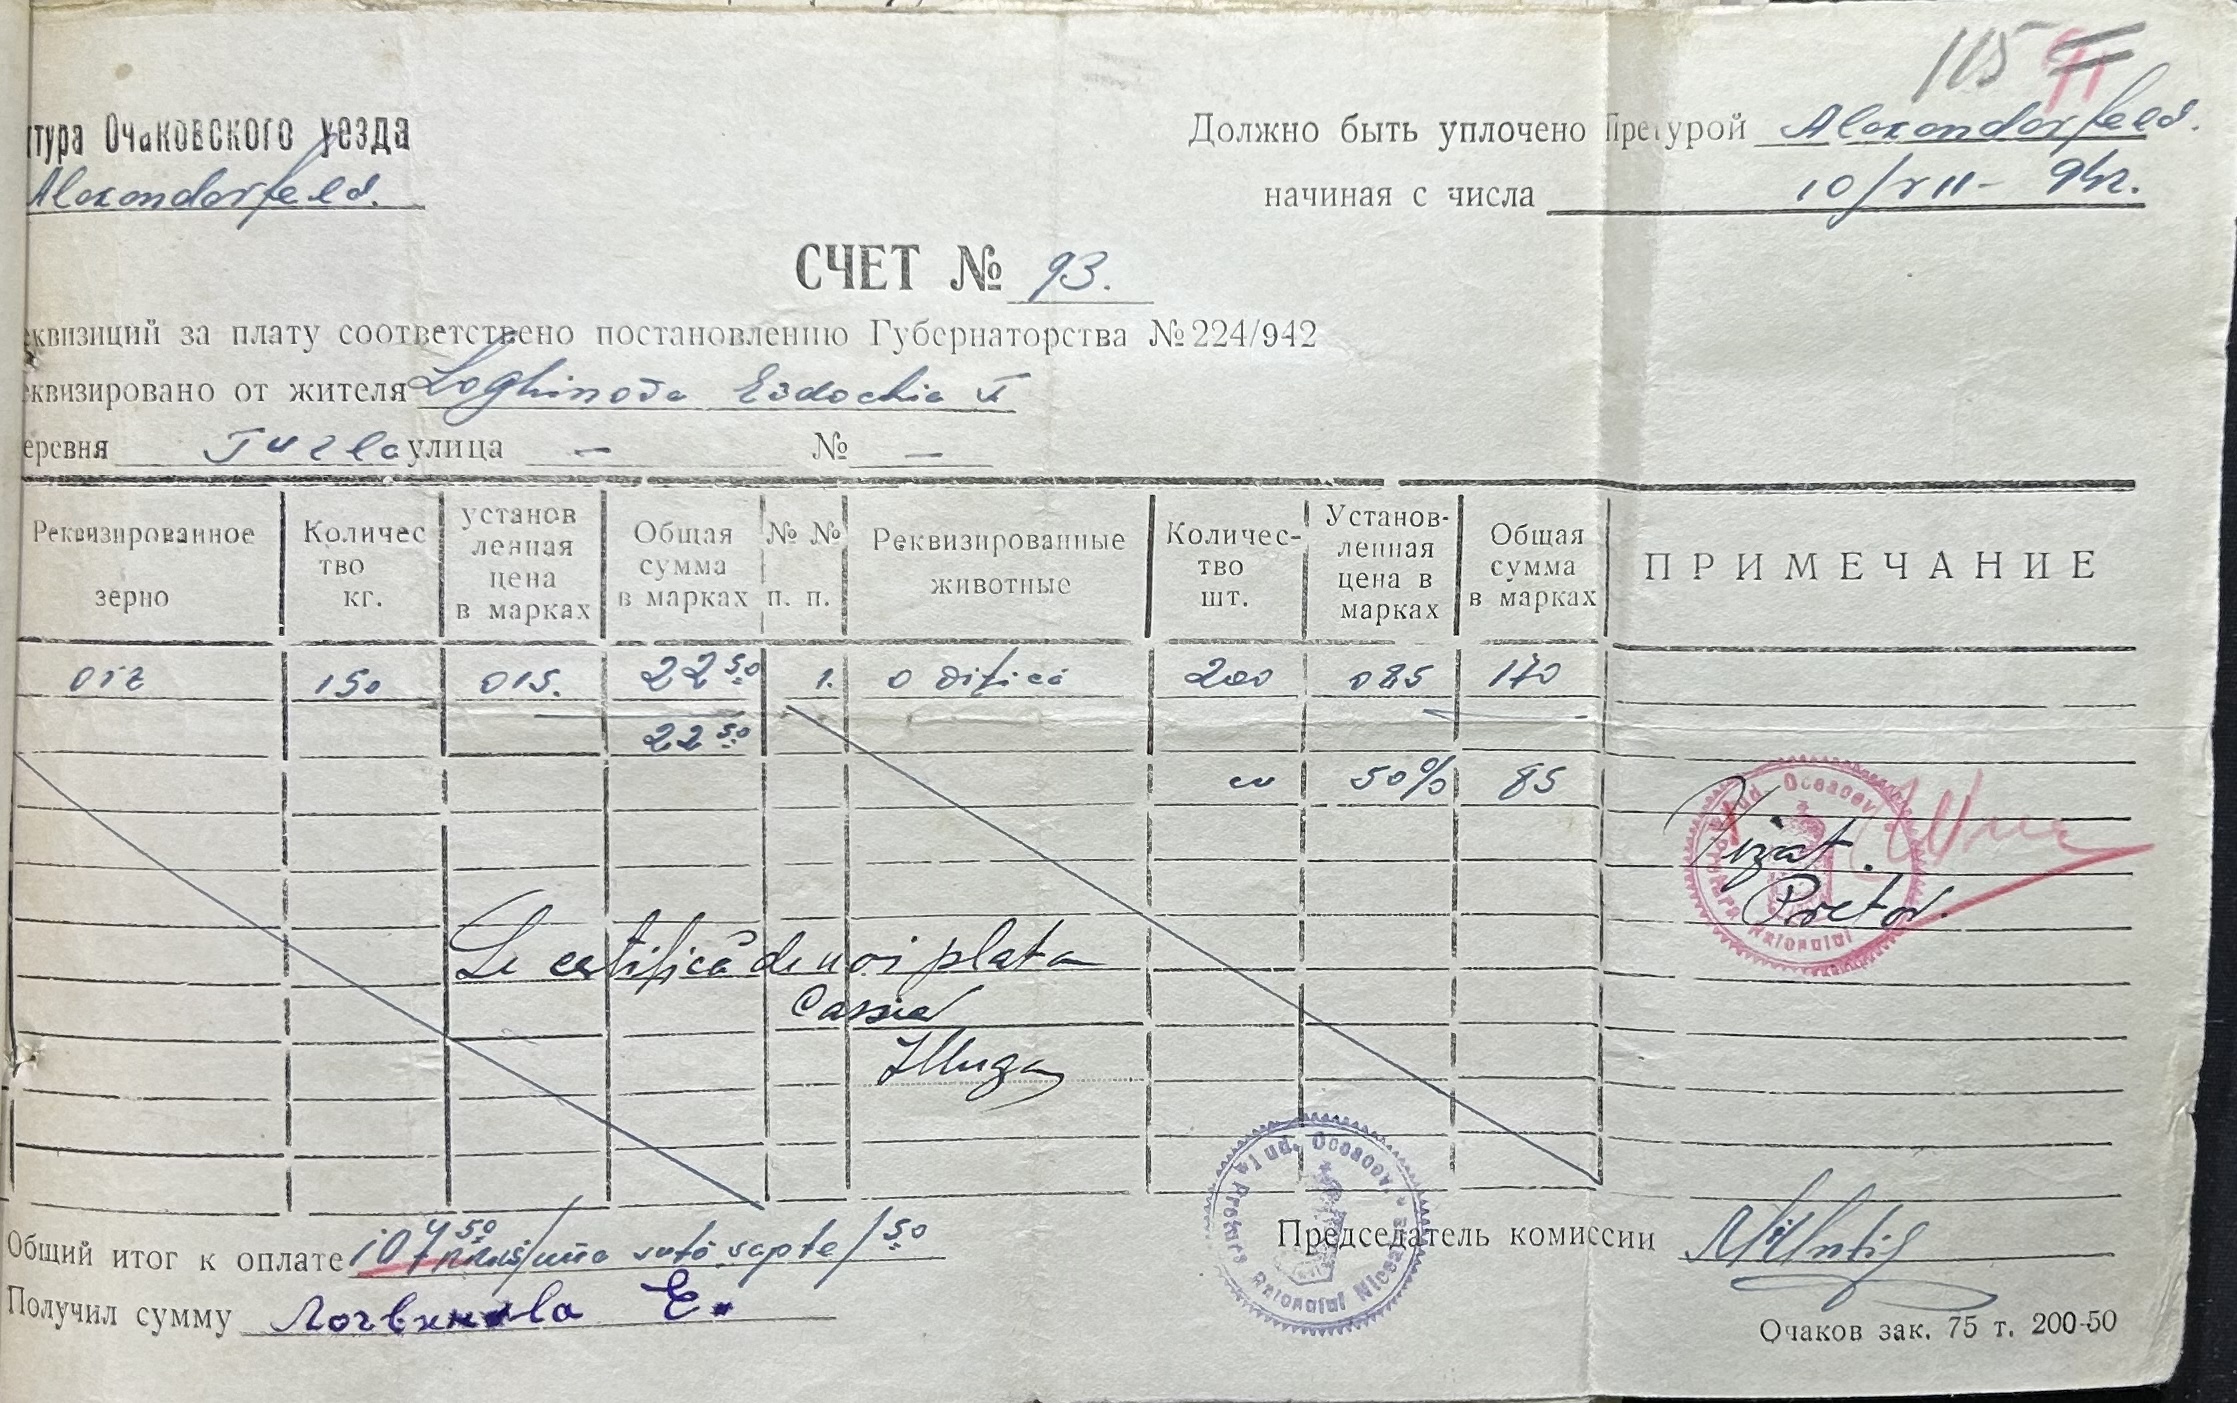 115 91
ктура Очаковского уезда
Alexandorfeld.
Должно быть уплочено Претурой Alexandorfeld.
начиная с числа 10/XII- 942.
СЧЕТ № 93.
еквизиций за плату соответствено постановлению Губернаторства №224/942
еквизировано от жителя Loghinova Evdochia
еревня улица - № -
Реквизированное зерно
Количес тво кг.
установ ленная цена в марках
Общая сумма в марках
№ № п. п.
Реквизированные животные
Количес- тво шт.
Установ- ленная цена в марках
Общая сумма в марках
ПРИМЕЧАНИЕ
orz 150 015. 22 50 1. O vițică 200 085 170
22 50
cu 50% 85
Jud. Oceacov
Raionului
Vizat.
Pretor.
Se certifică de noi plata
Casier
* Jud. Oceacov. * Pretura Raionului
Общий итог к оплате 107 50 /una sută șapte/ 50
Председатель комиссии
Получил сумму Логвинова Е.
Очаков зак. 75 т. 200-50